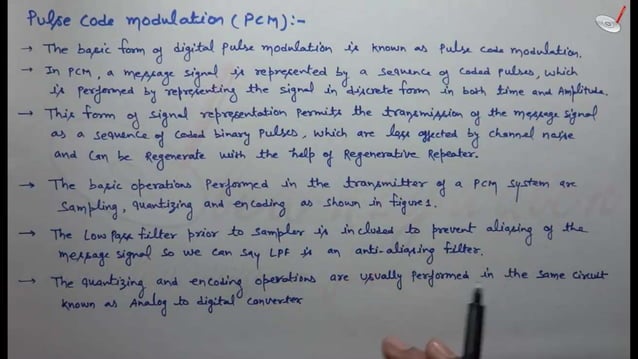 Pulse Code modulation (PCM):-
→ The basic form of digital pulse modulation is known as Pulse code modulation.
→ In PCM, a message signal is represented by a sequence of coded pulses, which
is performed by representing the signal in discrete form in both time and Amplitude.
→ This form of signal representation permits the transmission of the message signal
as a sequence of coded binary pulses, which are less affected by channel noise
and can be Regenerate with the help of Regenerative Repeater.
→ The basic operations Performed in the transmitter of a PCM system are
Sampling, quantizing and encoding as shown in figure 1.
→ The Low Pass filter prior to Sampler is included to prevent aliasing of the
message signal so we can say LPF is an anti-aliasing filter.
→ The quantizing and encoding operations are usually performed in the same circuit
known as Analog to digital converter